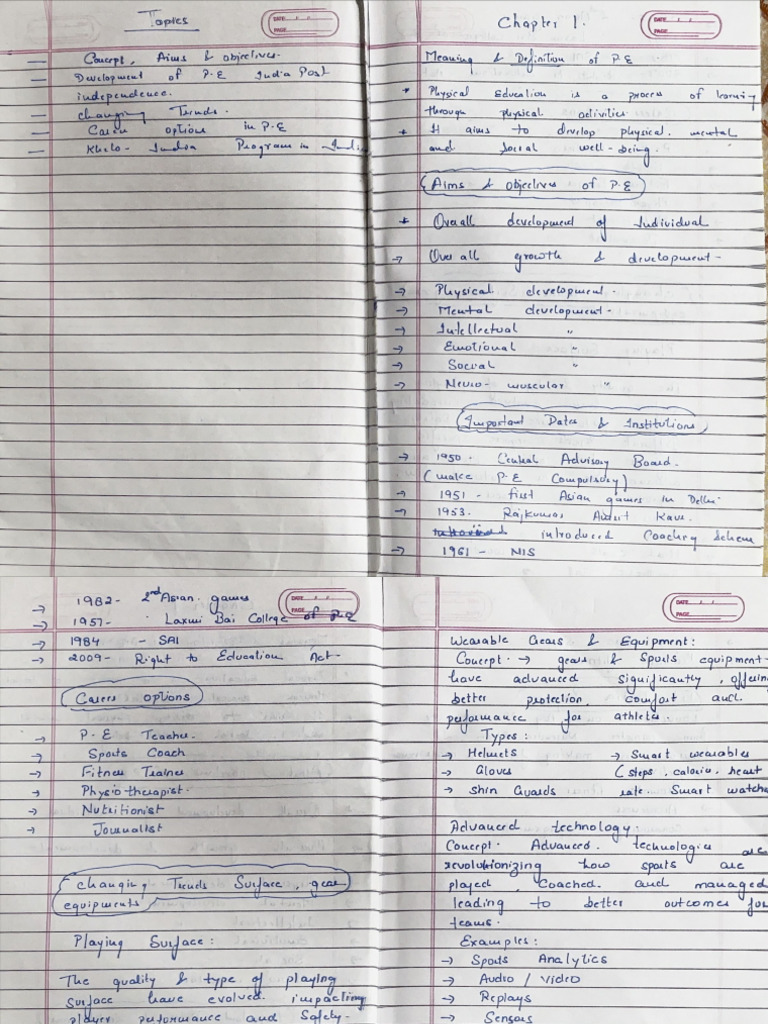 Topics
DATE / /
PAGE
— Concept, Aims & objectives.
— Development of P.E India Post
independence.
— changing Trends.
— Career options in P.E
— Khelo- India Program in India
Chapter 1.
DATE / /
PAGE
Meaning & Definition of P E
* Physical Education is a process of learning
through physical activities.
* It aims to develop physical, mental
and Social well-being.
Aims & objectives of P.E
* Overall development of Individual
→ Overall growth & development-
→ Physical development.
→ Mental development.
→ Intellectual "
→ Emotional "
→ Social "
→ Neuro-muscular "
Important Dates & Institutions
→ 1950. Central Advisory Board.
(make P.E Compulsory)
→ 1951 - first Asian games in Delhi.
→ 1953. Rajkumari Amrit Kaur
introduced Coaching Scheme
→ 1961 - NIS
→ 1982- 2nd Asian games
DATE / /
PAGE
→ 1957- Laxmi Bai College of P.E
→ 1984 - SAI
→ 2009- Right to Education Act-
Career options
→ P.E Teacher.
→ Sports Coach
→ Fitness Trainer
→ Physiotherapist.
→ Nutritionist
→ Journalist
changing Trends Surface, gear
equipments
Playing Surface:
The quality & type of playing
Surface have evolved, impacting
player performance and Safety.
DATE / /
PAGE
Wearable Gears & Equipment:
Concept → gears & Sports equipment
have advanced significantly, offering
better protection, comfort and
performance for athletes.
Types:
→ Helmets → Smart wearables
→ Gloves (steps, calorie, heart
→ Shin Guards rate. Smart watches
Advanced technology:
Concept. Advanced technologies are
revolutionizing how sports are
played, Coached and managed
leading to better outcomes for
teams.
Examples:
→ Sports Analytics
→ Audio / Video
→ Replays
→ Sensors